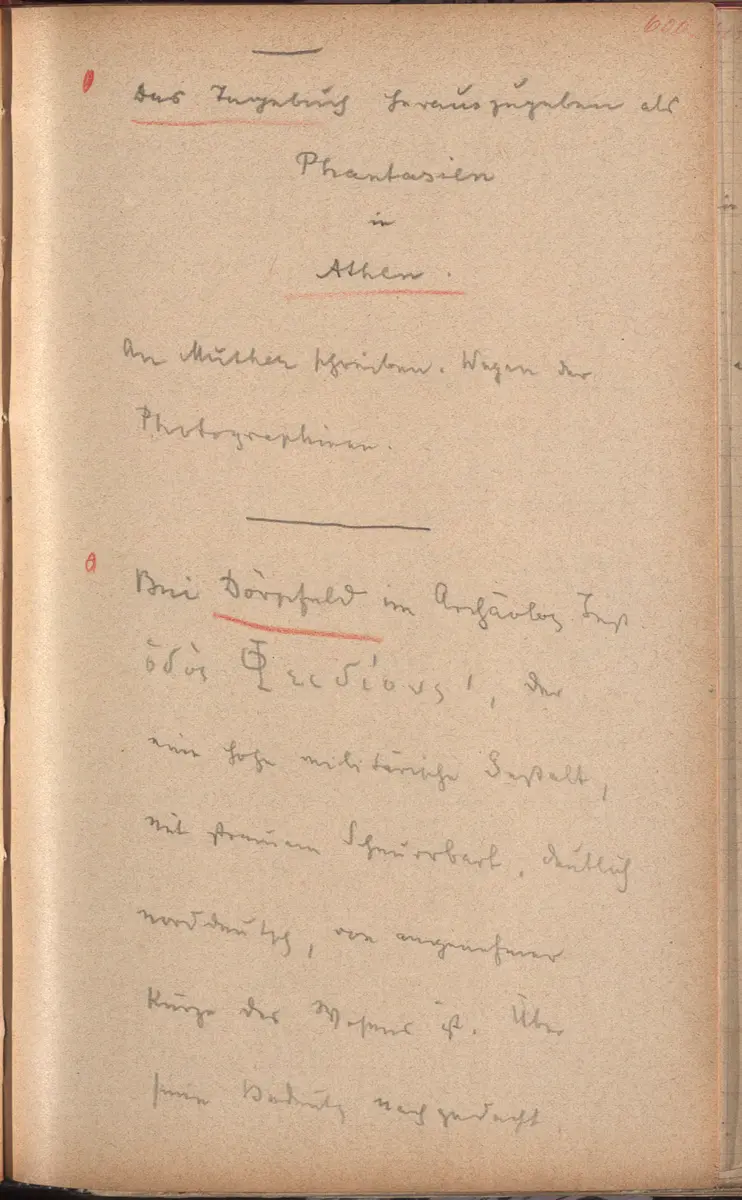 606
Das Tagebuch herauszugeben als
Phantasien
in
Athen.
An Muther schreiben. Wegen der
Photographieen.
Bei Dörpfeld im Archäolog Inst.
ὁδὸς Φειδίου 1, der
eine hohe militärische Gestalt,
mit Schnurrbart, deutlich
norddeutsch, von angenehmer
Kürze des Wesens ist. Über
seine nachgedacht